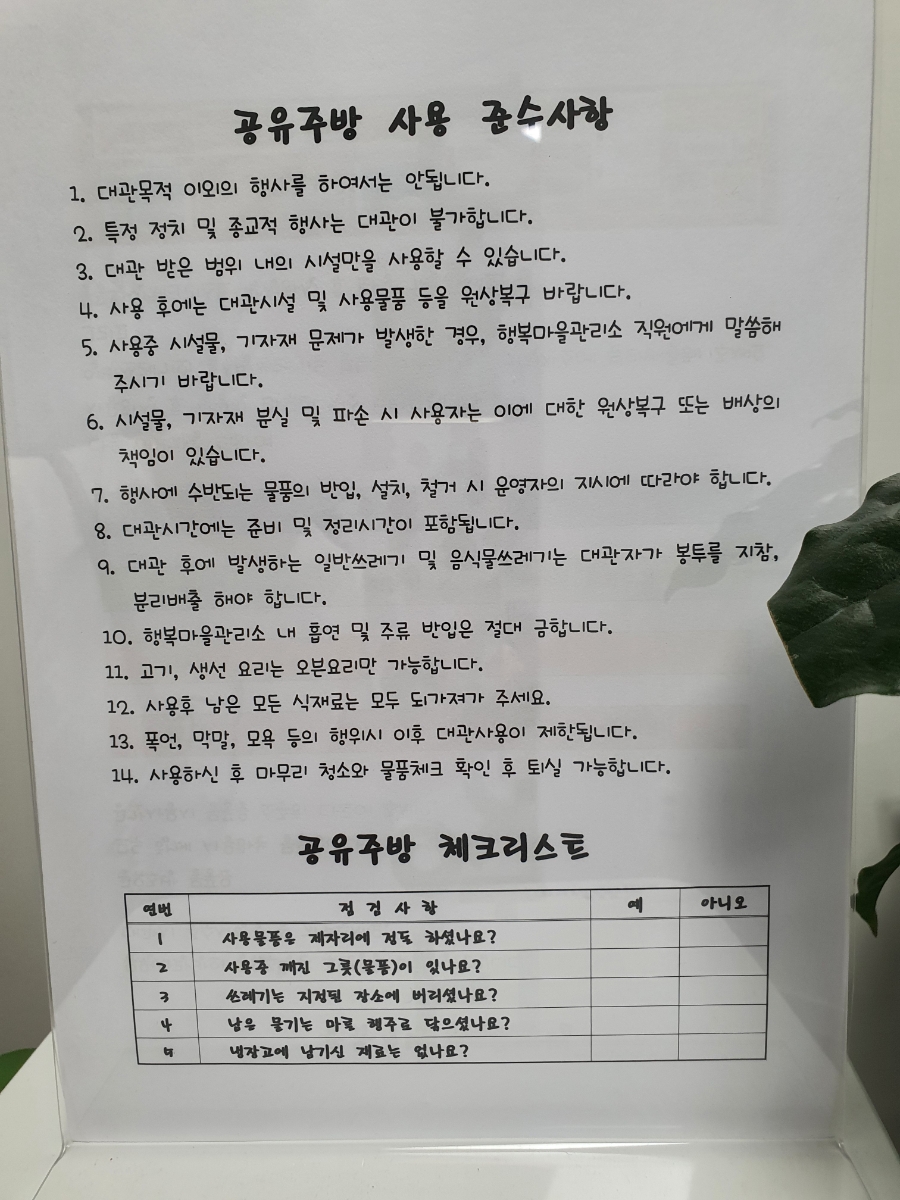 공유주방 사용 준수사항
1. 대관목적 이외의 행사를 하여서는 안됩니다.
2. 특정 정치 및 종교적 행사는 대관이 불가합니다.
3. 대관 받은 범위 내의 시설만을 사용할 수 있습니다.
4. 사용 후에는 대관시설 및 사용물품 등을 원상복구 바랍니다.
5. 사용중 시설물, 기자재 문제가 발생한 경우, 행복마을관리소 직원에게 말씀해
주시기 바랍니다.
6. 시설물, 기자재 분실 및 파손 시 사용자는 이에 대한 원상복구 또는 배상의
책임이 있습니다.
7. 행사에 수반되는 물품의 반입, 설치, 철거 시 운영자의 지시에 따라야 합니다.
8. 대관시간에는 준비 및 정리시간이 포함됩니다.
9. 대관 후에 발생하는 일반쓰레기 및 음식물쓰레기는 대관자가 봉투를 지참,
분리배출 해야 합니다.
10. 행복마을관리소 내 흡연 및 주류 반입은 절대 금합니다.
11. 고기, 생선 요리는 오븐요리만 가능합니다.
12. 사용후 남은 모든 식재료는 모두 되가져가 주세요.
13. 폭언, 막말, 모욕 등의 행위시 이후 대관사용이 제한됩니다.
14. 사용하신 후 마무리 청소와 물품체크 확인 후 퇴실 가능합니다.
공유주방 체크리스트
연번 점 검 사 항 예 아니오
1 사용물품은 제자리에 정돈 하셨나요?
2 사용중 깨진 그릇(물품)이 있나요?
3 쓰레기는 지정된 장소에 버리셨나요?
4 남은 물기는 마른 행주로 닦으셨나요?
5 냉장고에 남기신 재료는 없나요?